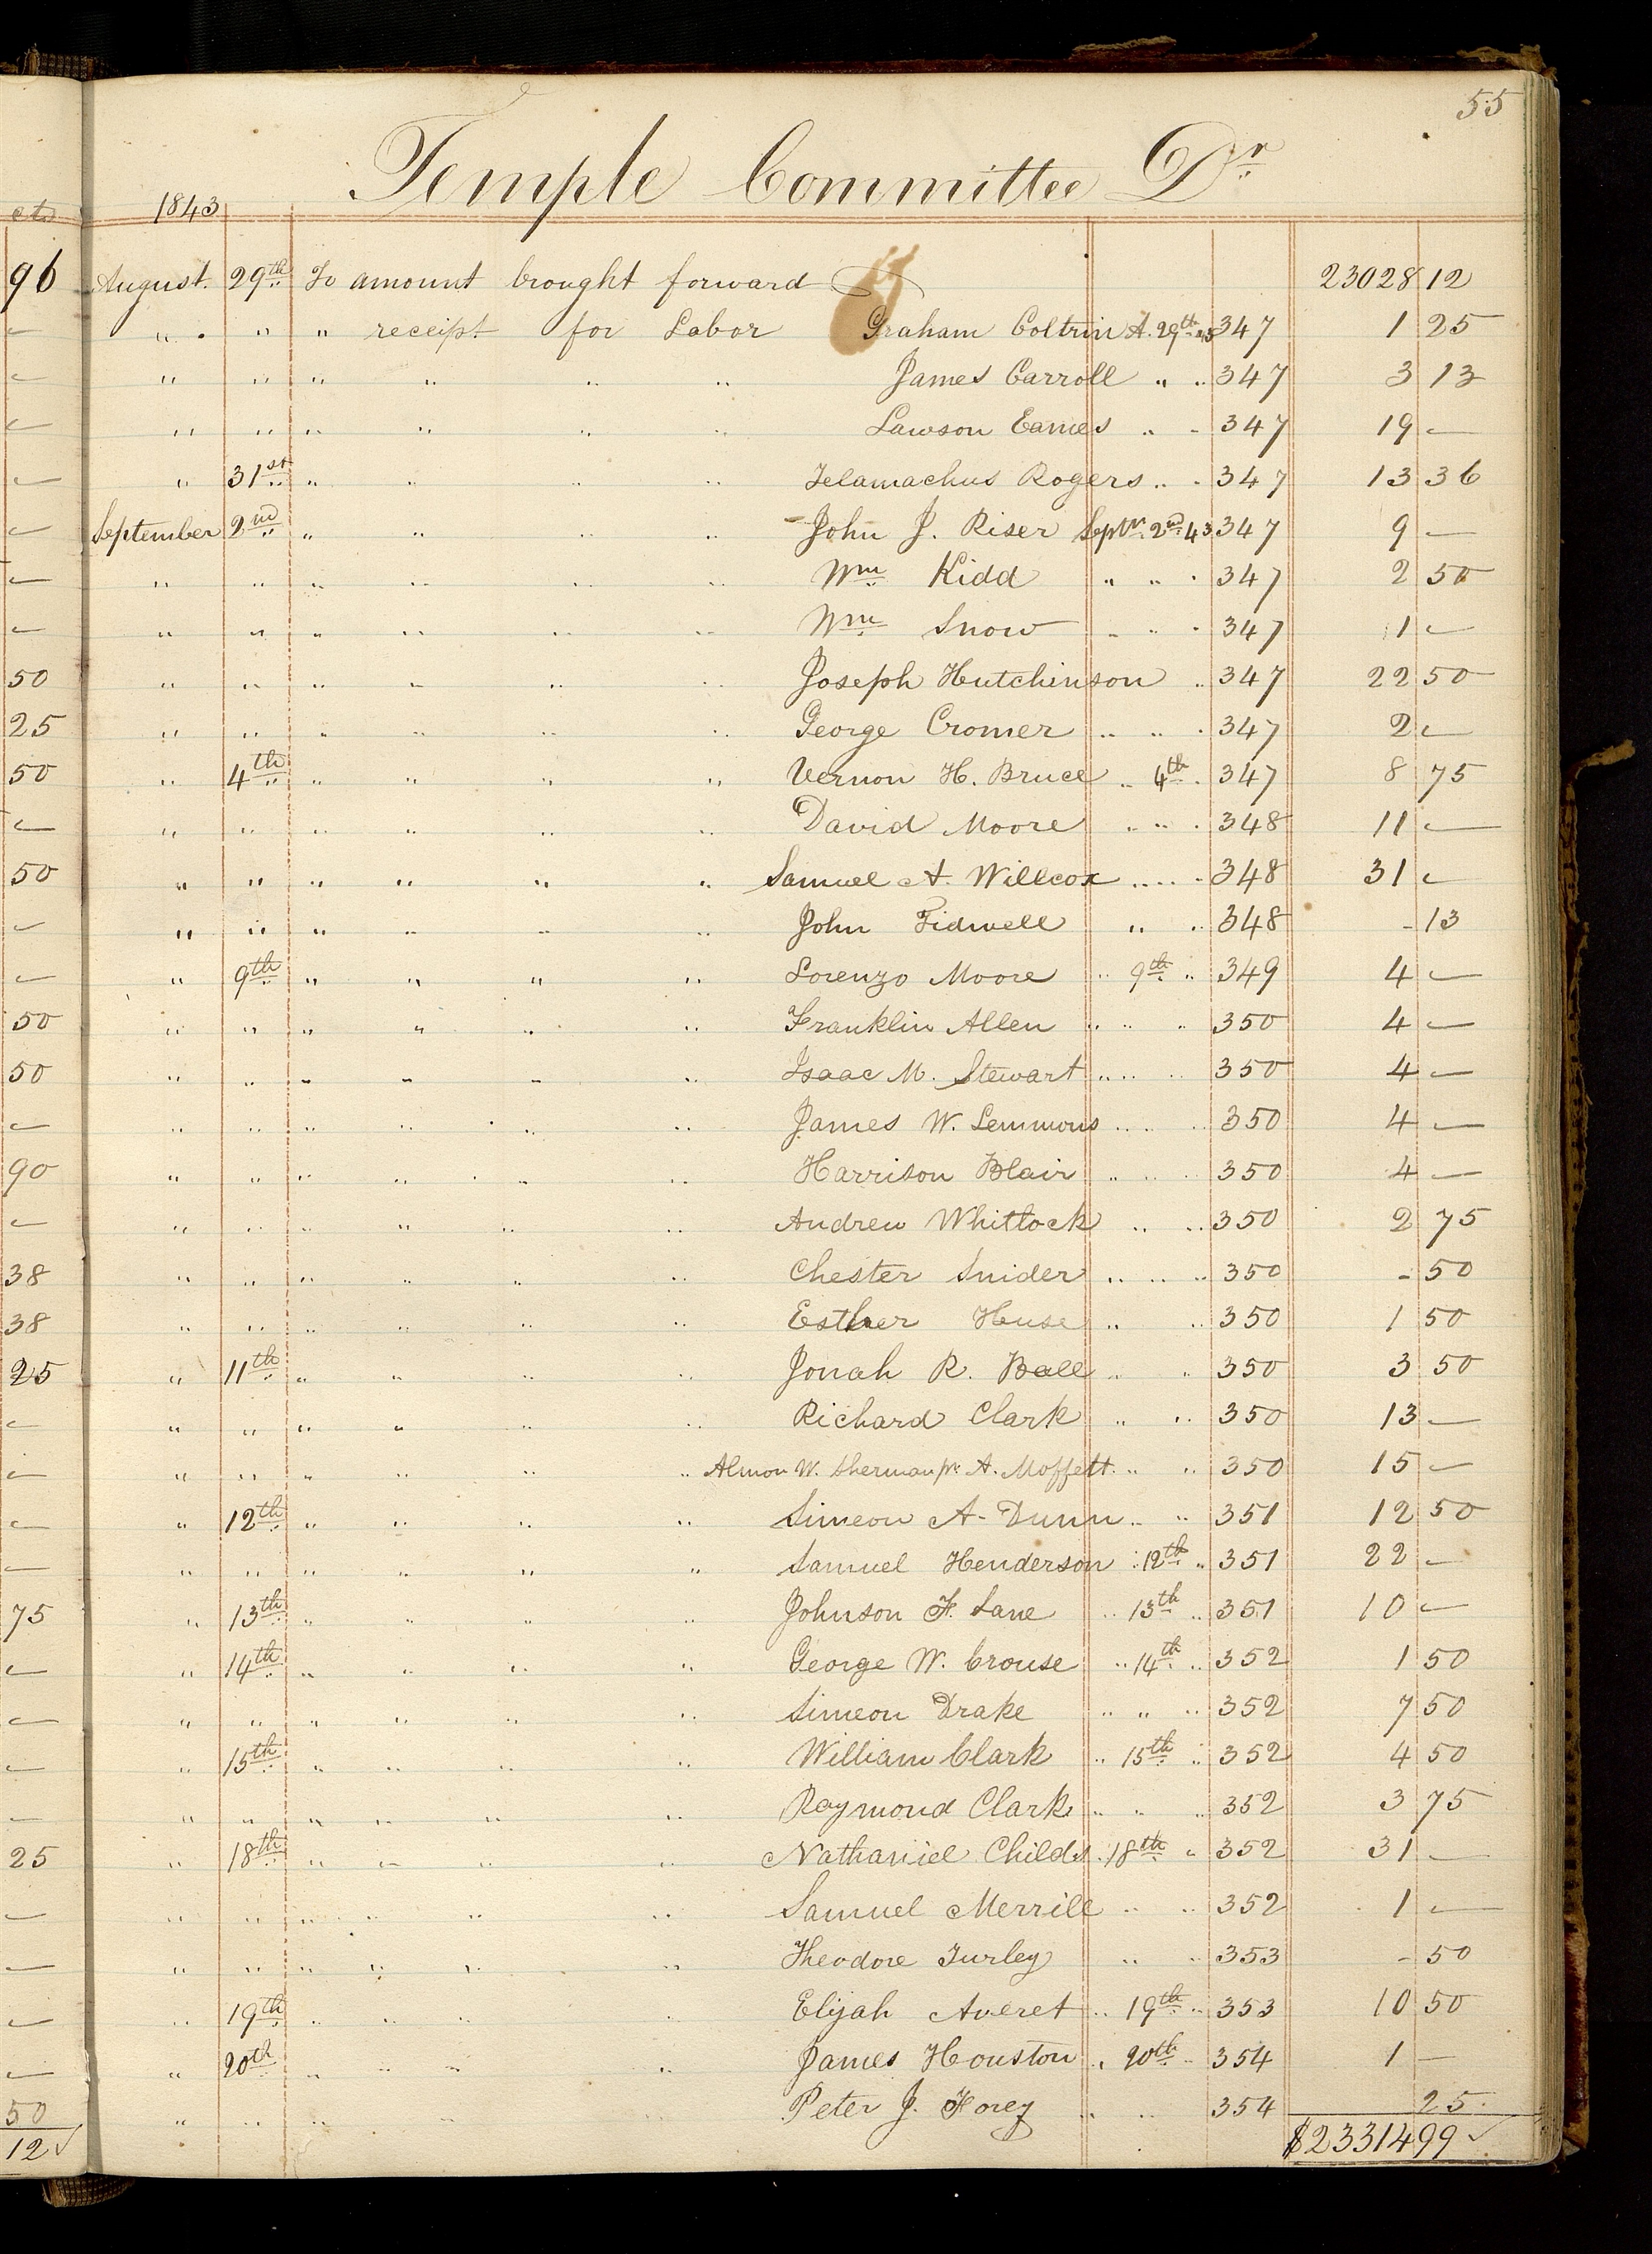 55
Temple Committee Dr
cts 1843
96 August. 29th To amount brought forward 23028 12
" " " receipt for Labor Graham Coltrin A. 29th 43 347 1 25
" " " " " " James Carroll " " 347 3 13
" " " " " " Lawson Eames " " 347 19 —
" 31st " " " " Telamachus Rogers " " 347 13 36
September 2nd " " " " John J. Riser Septr. 2nd 43 347 9 —
" " " " " " Wm Kidd " " " 347 2 50
" " " " " " Wm Snow " " " 347 1 —
50 " " " " " " Joseph Hutchinson " 347 22 50
25 " " " " " " George Cromer " " " 347 2 —
50 " 4th " " " " Vernon H. Bruce " 4th " 347 8 75
" " " " " " David Moore " " " 348 11 —
50 " " " " " " Samuel A. Willcox " " " 348 31 —
" " " " " " John Tidwell " " 348 - 13
" 9th " " " " Lorenzo Moore " 9th " 349 4 —
50 " " " " " " Franklin Allen " " " 350 4 —
50 " " " " " " Isaac M. Stewart " " " 350 4 —
" " " " " " James W. Lemmons " " " 350 4 —
90 " " " " " " Harrison Blair " " " 350 4 —
" " " " " " Andrew Whitlock " " 350 2 75
38 " " " " " " Chester Snider " " " 350 - 50
38 " " " " " " Esther Huse " " 350 1 50
25 " 11th " " " " Jonah R. Ball " " 350 3 50
" " " " " " Richard Clark " " 350 13 —
" " " " " " Almon W. Sherman pr. A. Moffett " " 350 15 —
" 12th " " " " Simeon A. Dunn " " 351 12 50
" " " " " " Samuel Henderson " 12th " 351 22 —
75 " 13th " " " " Johnson F. Lane " 13th " 351 10 —
" 14th " " " " George W. Crouse " 14th " 352 1 50
" " " " " " Simeon Drake " " " 352 7 50
" 15th " " " " William Clark " 15th " 352 4 50
" " " " " " Raymond Clark " " " 352 3 75
25 " 18th " " " " Nathaniel Childs " 18th " 352 31 —
" " " " " " Samuel Merrill " " 352 1 —
" " " " " " Theodore Turley " " 353 - 50
" 19th " " " " Elijah Averet " 19th " 353 10 50
" 20th " " " " James Houston " 20th " 354 1 —
50 " " " " " " Peter J. Horey " " 354 25
12 $23314 99